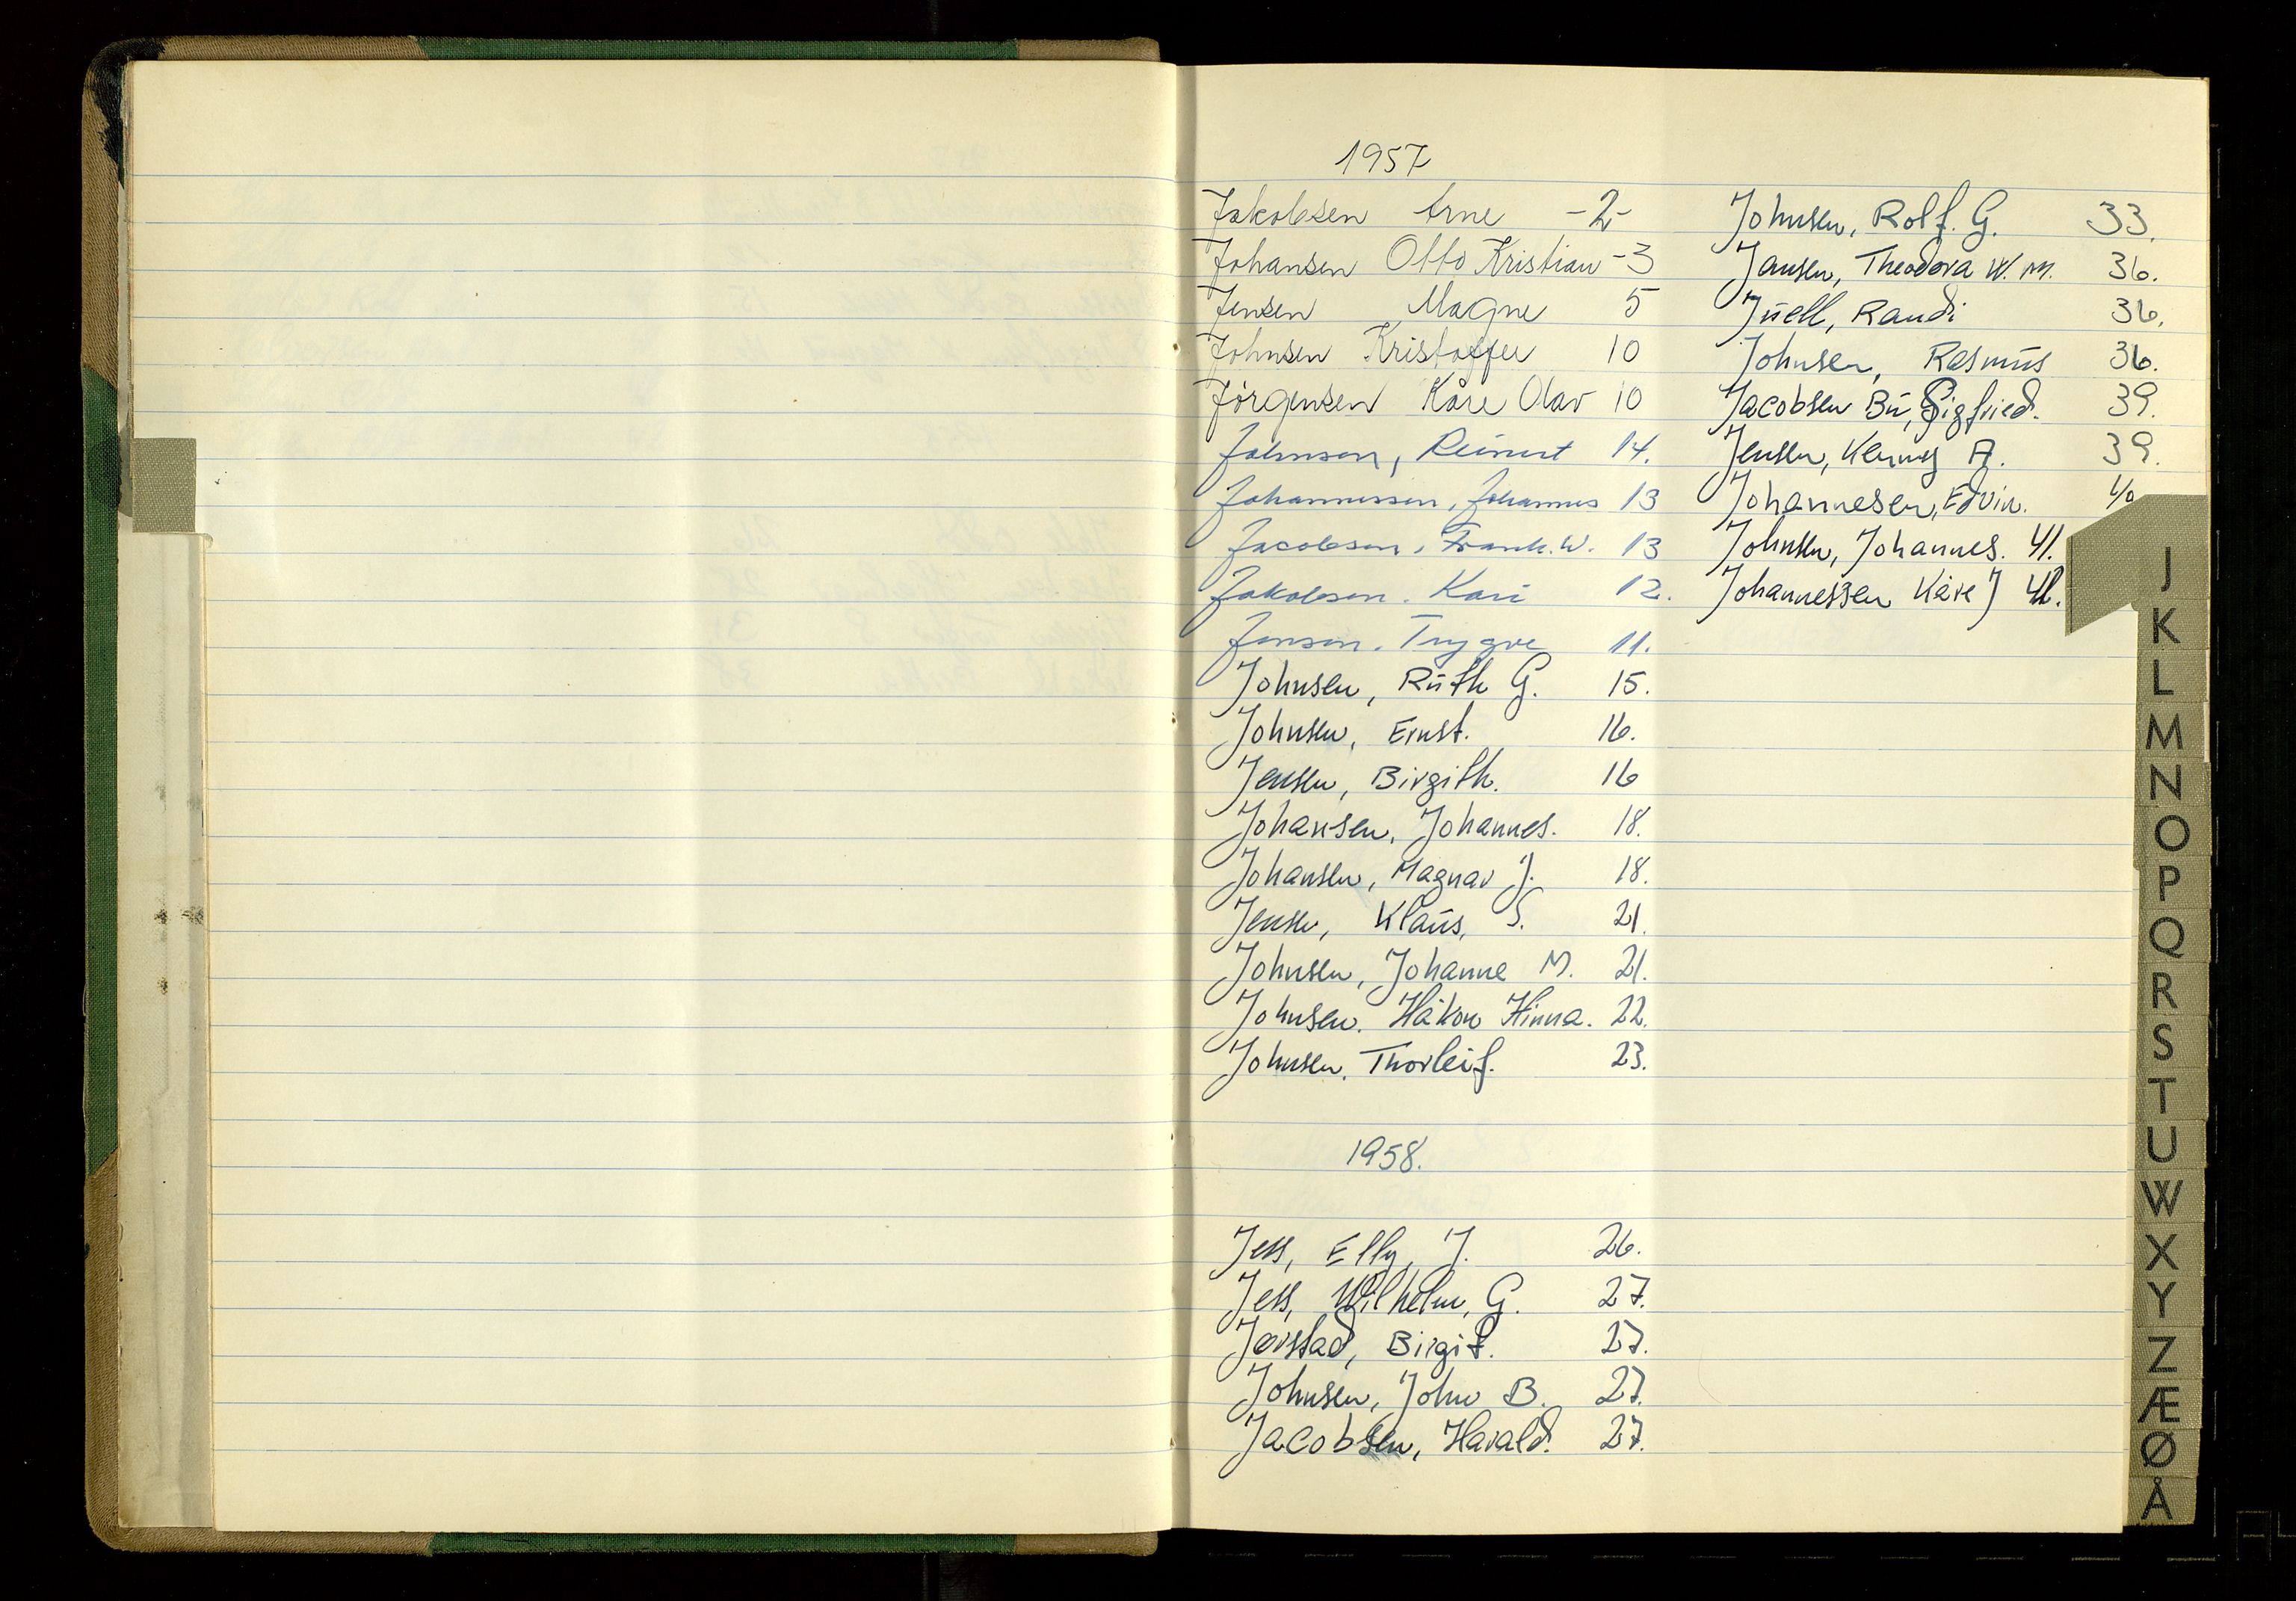 1957
Jakobsen Arne -2-
Johansen Otto Kristian -3
Jensen Magne 5
Johnsen Kristoffer 10
Jørgensen Kåre Olav 10
Johnsen, Reinert 14.
Johannessen, Johannes 13
Jacobsen, Frank. W. 13
Jakobsen. Kari 12.
Jensen. Trygve 11.
Johnsen, Ruth G. 15.
Johnsen, Ernst. 16.
Jensen, Birgith. 16
Johansen, Johannes. 18.
Johansen, Magnar J. 18.
Jensen, Klaus, S. 21.
Johnsen, Johanne M. 21.
Johnsen. Håkon Hinna. 22.
Johnsen. Thorleif. 23.
1958.
Jess, Elly, J. 26.
Jess, Wilhelm, G. 27.
Jørstad, Birgit. 27.
Johnsen, John B. 27.
Jacobsen, Harald. 27.
Johnsen, Rolf. G. 33.
Jansen, Theodora W. M. 36.
Juell, Randi 36.
Johnsen, Rasmus 36.
Jacobsen Bu, Sigfried. 39.
Jensen, A. 39.
Johannesen, Edvin. 40
Johnsen, Johannes. 41.
Johannessen Kåre J
J
K
L
M
N
O
P
Q
R
S
T
U
W
X
Y
Z
Æ
Ø
Å